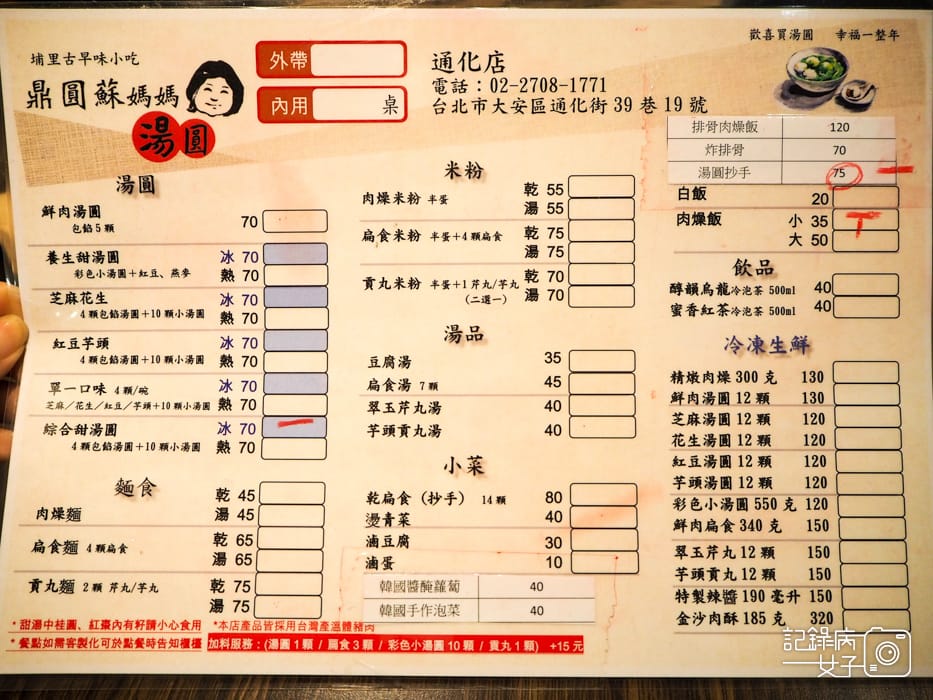 埔里古早味小吃
鼎圓蘇媽媽
湯圓
外帶
內用 桌
通化店
電話：02-2708-1771
台北市大安區通化街39巷19號
歡喜買湯圓 幸福一整年
湯圓
鮮肉湯圓 70
包餡5顆
養生甜湯圓 冰 70
彩色小湯圓+紅豆、燕麥 熱 70
芝麻花生 冰 70
4顆包餡湯圓+10顆小湯圓 熱 70
紅豆芋頭 冰 70
4顆包餡湯圓+10顆小湯圓 熱 70
單一口味 4顆/碗 冰 70
芝麻／花生／紅豆／芋頭+10顆小湯圓 熱 70
綜合甜湯圓 冰 70
4顆包餡湯圓+10顆小湯圓 熱 70
麵食
肉燥麵 乾 45
湯 45
扁食麵 4顆扁食 乾 65
湯 65
貢丸麵 2顆 芹丸/芋丸 乾 75
湯 75
米粉
肉燥米粉 半蛋 乾 55
湯 55
扁食米粉 半蛋+4顆扁食 乾 75
湯 75
貢丸米粉 半蛋+1芹丸/芋丸 乾 70
(二選一) 湯 70
湯品
豆腐湯 35
扁食湯 7顆 45
翠玉芹丸湯 40
芋頭貢丸湯 40
小菜
乾扁食（抄手） 14顆 80
燙青菜 40
滷豆腐 30
滷蛋 10
韓國醬醃蘿蔔 40
韓國手作泡菜 40
排骨肉燥飯 120
炸排骨 70
湯圓抄手 75
白飯 20
肉燥飯 小 35
大 50
飲品
醇韻烏龍冷泡茶 500ml 40
蜜香紅茶冷泡茶 500ml 40
冷凍生鮮
精燉肉燥 300克 130
鮮肉湯圓 12顆 130
芝麻湯圓 12顆 120
花生湯圓 12顆 120
紅豆湯圓 12顆 120
芋頭湯圓 12顆 120
彩色小湯圓 550克 120
鮮肉扁食 340克 150
翠玉芹丸 12顆 150
芋頭貢丸 12顆 150
特製辣醬 190毫升 150
金沙肉酥 185克 320
* 甜湯中桂圓、紅棗內有籽請小心食用 *本店產品皆採用台灣產溫體豬肉
* 餐點如需客製化可於點餐時告知櫃檯 加料服務：(湯圓1顆 / 扁食3顆 / 彩色小湯圓10顆 / 貢丸1顆) +15元
記錄病女子